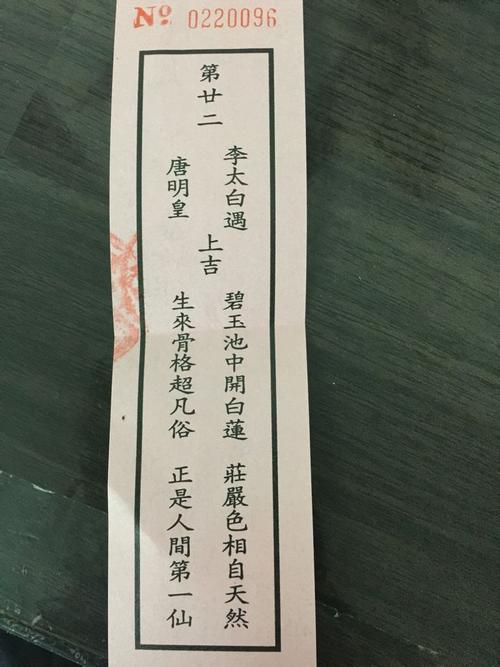 Nº 0220096
第廿二
李太白遇
唐明皇
上吉
碧玉池中開白蓮 莊嚴色相自天然
生來骨格超凡俗 正是人間第一仙